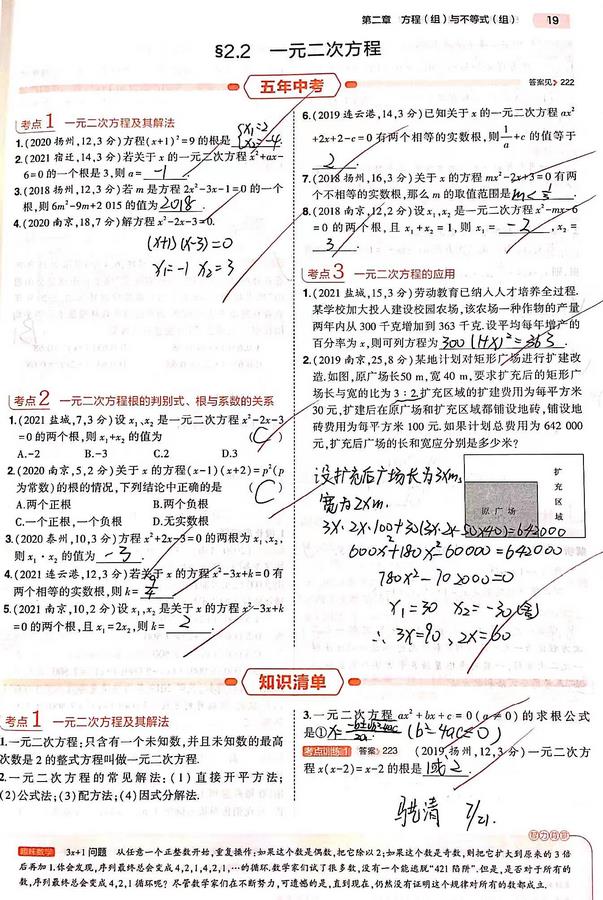 第二章 方程(组)与不等式(组) 19
§2.2 一元二次方程
五年中考
答案见 222
考点1 一元二次方程及其解法
1.(2020 扬州,12,3 分)方程(x+1)²=9的根是 x₁=2 x₂=-4.
2.(2021 宿迁,14,3 分)若关于 x 的一元二次方程 x²+ax-
6=0的一个根是3,则 a= -1 .
3.(2018 扬州,12,3 分)若 m 是方程 2x²-3x-1=0 的一个
根,则 6m²-9m+2 015 的值为 2018 .
4.(2020 南京,18,7 分)解方程 x²-2x-3=0.
(x+1)(x-3)=0
x₁=-1 x₂=3
考点2 一元二次方程根的判别式、根与系数的关系
1.(2021 盐城,7,3 分)设 x₁、x₂ 是一元二次方程 x²-2x-3
=0 的两个根,则 x₁+x₂ 的值为 (C)
A.-2 B.-3 C.2 D.3
2.(2020 南京,5,2 分)关于 x 的方程(x-1)(x+2)=p²(p
为常数)的根的情况,下列结论中正确的是 (C)
A.两个正根 B.两个负根
C.一个正根,一个负根 D.无实数根
3.(2020 泰州,10,3 分)方程 x²+2x-3=0 的两根为 x₁、x₂,
则 x₁·x₂ 的值为 -3 .
4.(2021 连云港,12,3 分)若关于 x 的方程 x²-3x+k=0 有
两个相等的实数根,则 k= 9/4 .
5.(2021 南京,10,2 分)设 x₁,x₂ 是关于 x 的方程 x²-3x+k
=0 的两个根,且 x₁=2x₂,则 k= 2 .
6.(2019 连云港,14,3 分)已知关于 x 的一元二次方程 ax²
+2x+2-c=0 有两个相等的实数根,则 1/a +c 的值等于
2 .
7.(2018 扬州,16,3 分)关于 x 的方程 mx²-2x+3=0 有两
个不相等的实数根,那么 m 的取值范围是 m<1/3 .
8.(2018 南京,12,2 分)设 x₁、x₂ 是一元二次方程 x²-mx-6
=0 的两个根,且 x₁+x₂=1,则 x₁= -2 ,x₂=
3 .
考点3 一元二次方程的应用
1.(2021 盐城,15,3 分)劳动教育已纳入人才培养全过程.
某学校加大投入建设校园农场,该农场一种作物的产量
两年内从 300 千克增加到 363 千克.设平均每年增产的
百分率为 x,则可列方程为 300(1+x)²=363 .
2.(2019 南京,25,8 分)某地计划对矩形广场进行扩建改
造.如图,原广场长50 m,宽 40 m,要求扩充后的矩形广
场长与宽的比为 3:2.扩充区域的扩建费用为每平方米
30 元,扩建后在原广场和扩充区域都铺设地砖,铺设地
砖费用为每平方米 100 元.如果计划总费用为 642 000
元,扩充后广场的长和宽应分别是多少米?
设扩充后广场长为3xm,
宽为2xm.
3x·2x·100+30(3x·2x-50×40)=642000
600x²+180x²-60000=642000
780x²-702000=0
x₁=30 x₂=-30(舍)
∴3x=90,2x=60
原广场
扩充区域
知识清单
考点1 一元二次方程及其解法
1.一元二次方程:只含有一个未知数,并且未知数的最高
次数是2的整式方程叫做一元二次方程.
2.一元二次方程的常见解法:(1)直接开平方法;
(2)公式法;(3)配方法;(4)因式分解法.
3.一元二次方程 ax²+bx+c=0(a≠0)的求根公式
是① x=(-b±√b²-4ac)/2a (b²-4ac≥0)
考点训练1 答案 223 (2019 扬州,12,3 分)一元二次方
程 x(x-2)=x-2 的根是 1或2 .
7/21.
智力背景
趣味数学 3x+1 问题 从任意一个正整数开始,重复操作:如果这个数是偶数,把它除以2;如果这个数是奇数,则把它扩大到原来的3倍
后再加1.你会发现,序列最终总会变成4,2,1,4,2,1,…的循环.数学家们试了很多数,没有一个能逃脱“421 陷阱”.但是,是否对于所有的
数,序列最终总会变成4,2,1循环呢?尽管数学家们在不断努力,可遗憾的是,直到现在,仍然没有证明这个规律对所有的数都成立.